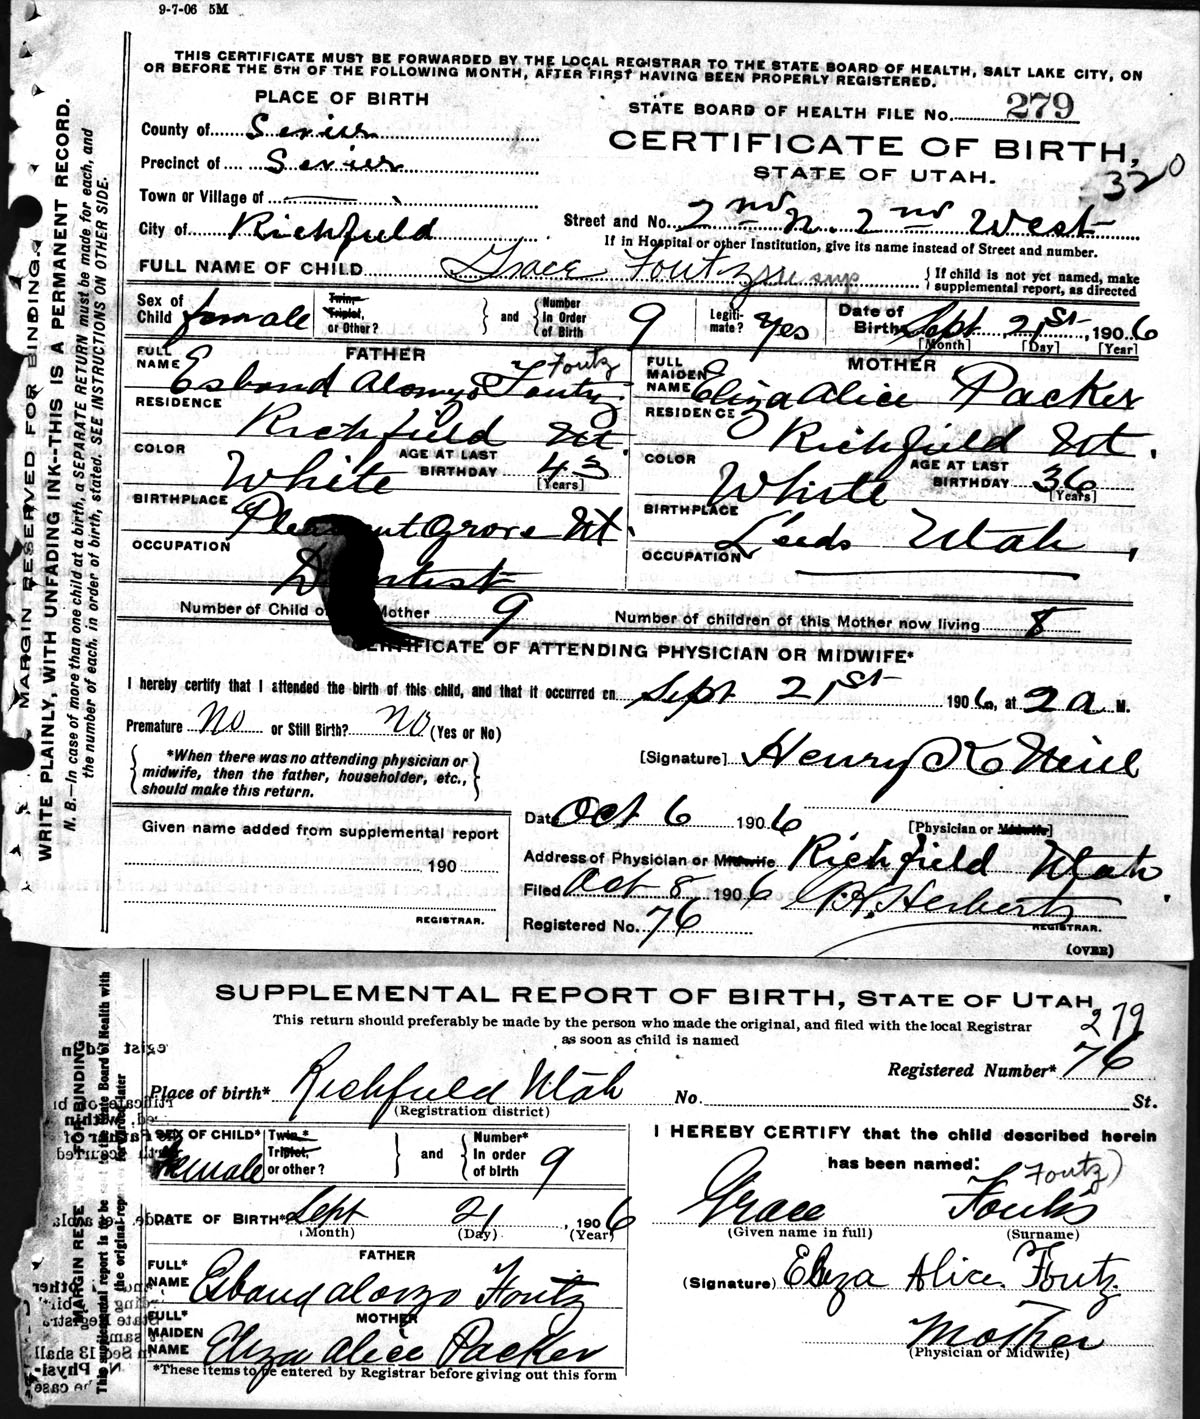 9-7-06 5M
THIS CERTIFICATE MUST BE FORWARDED BY THE LOCAL REGISTRAR TO THE STATE BOARD OF HEALTH, SALT LAKE CITY, ON
OR BEFORE THE 5TH OF THE FOLLOWING MONTH, AFTER FIRST HAVING BEEN PROPERLY REGISTERED.
MARGIN RESERVED FOR BINDING.
WRITE PLAINLY, WITH UNFADING INK--THIS IS A PERMANENT RECORD.
N. B.—In case of more than one child at a birth, a SEPARATE RETURN must be made for each, and
the number of each, in order of birth, stated. SEE INSTRUCTIONS ON OTHER SIDE.
PLACE OF BIRTH
County of Sevier
Precinct of Sevier
Town or Village of
City of Richfield
STATE BOARD OF HEALTH FILE No. 279
CERTIFICATE OF BIRTH,
STATE OF UTAH.
320
Street and No. 2nd N. 2nd West
If in Hospital or other Institution, give its name instead of Street and number.
FULL NAME OF CHILD Grace Foutz
If child is not yet named, make
supplemental report, as directed
Sex of Child female Twin, Triplet, or Other? and Number in Order of Birth 9 Legitimate? Yes Date of Birth Sept 21st, 1906
[Month] [Day] [Year]
FATHER
FULL NAME Esbond Alonzo Foutz Foutz
RESIDENCE Richfield Ut.
COLOR White AGE AT LAST BIRTHDAY 43 [Years]
BIRTHPLACE Pleasant Grove Ut.
OCCUPATION Dentist
MOTHER
FULL MAIDEN NAME Eliza Alice Packer
RESIDENCE Richfield Ut.
COLOR White AGE AT LAST BIRTHDAY 36 [Years]
BIRTHPLACE Leeds Utah
OCCUPATION
Number of Child of Mother 9 Number of children of this Mother now living 8
CERTIFICATE OF ATTENDING PHYSICIAN OR MIDWIFE*
I hereby certify that I attended the birth of this child, and that it occurred on Sept 21st 1906, at 2 a M.
Premature No or Still Birth? No (Yes or No)
*When there was no attending physician or
midwife, then the father, householder, etc.,
should make this return.
[Signature] Henry K Neill
Date Oct 6 1906 [Physician or Midwife]
Given name added from supplemental report
190
REGISTRAR.
Address of Physician or Midwife Richfield Utah
Filed Oct 8 1906
Registered No. 76
REGISTRAR.
(OVER)
SUPPLEMENTAL REPORT OF BIRTH, STATE OF UTAH
This return should preferably be made by the person who made the original, and filed with the local Registrar
as soon as child is named
279
Registered Number* 76
Place of birth* Richfield Utah No. St.
(Registration district)
SEX OF CHILD* Female Twin,* Triplet, or other? and Number* In order of birth 9
DATE OF BIRTH* Sept 21, 1906
(Month) (Day) (Year)
FATHER
FULL* NAME Esbond Alonzo Foutz
MOTHER
FULL* MAIDEN NAME Eliza Alice Packer
*These items to be entered by Registrar before giving out this form
I HEREBY CERTIFY that the child described herein
has been named:
Foutz)
Grace Fouts
(Given name in full) (Surname)
(Signature) Eliza Alice Foutz
Mother
(Physician or Midwife)